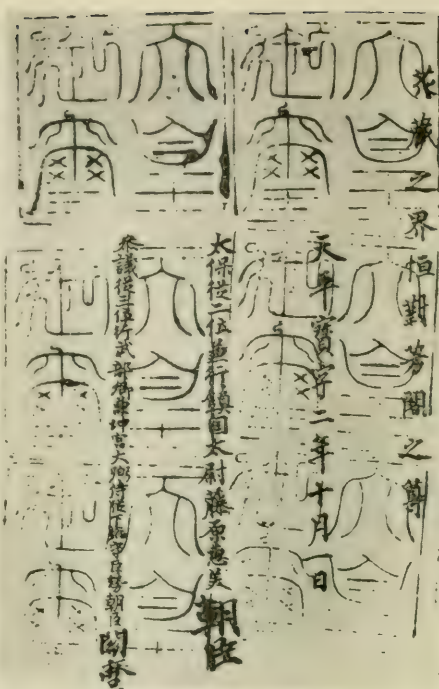 花蔵之界恒對芳閣之尊
天平寶字二年十月一日
太保從二位兼行鎮国太尉藤原惠美朝臣
參議從三位行武部卿兼坤宮大弼侍從下総守巨勢朝臣關麻呂